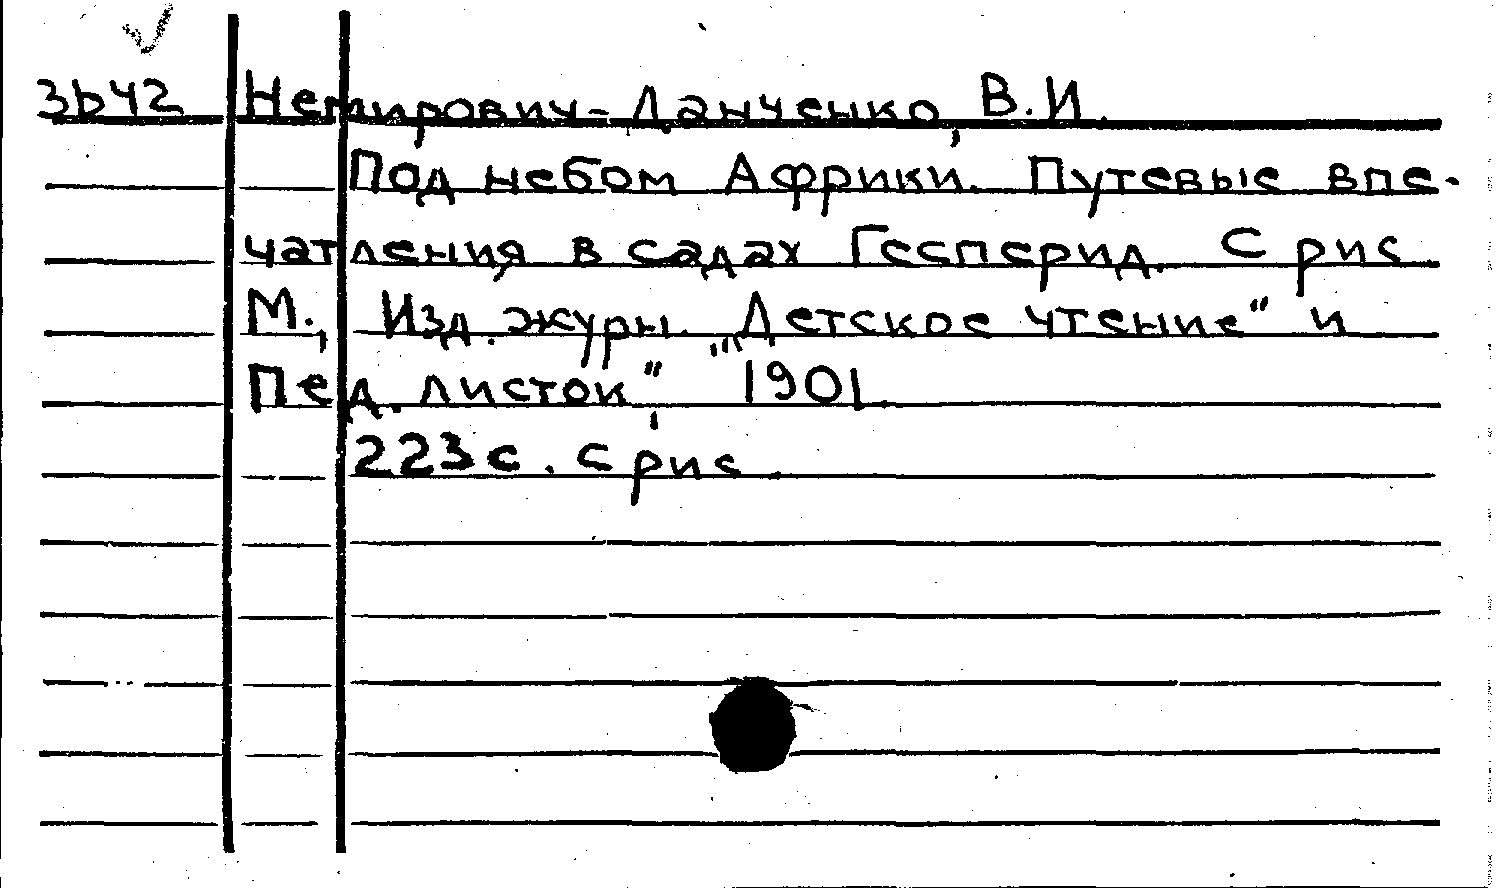 3b42 Немирович-Данченко, В.И.
Под небом Африки. Путевые впе-
чатления в садах Гесперид. С рис.
М., Изд. журн. „Детское чтение" и
„Пед. листок", 1901.
223с. с рис.